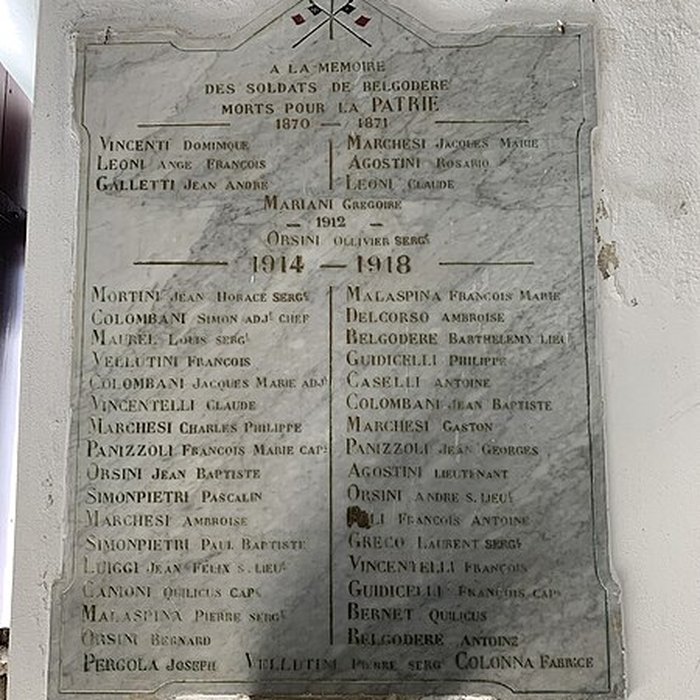 A LA MEMOIRE
DES SOLDATS DE BELGODERE
MORTS POUR LA PATRIE
1870 — 1871
VINCENTI DOMINIQUE
LEONI ANGE FRANÇOIS
GALLETTI JEAN ANDRE
MARCHESI JACQUES MARIE
AGOSTINI ROSARIO
LEONI CLAUDE
MARIANI GREGOIRE
— 1912 —
ORSINI OLLIVIER SERGT
1914 — 1918
MORTINI JEAN HORACE SERGT
COLOMBANI SIMON ADJT CHEF
MAUREL LOUIS SERGT
VELLUTINI FRANÇOIS
COLOMBANI JACQUES MARIE ADJT
VINCENTELLI CLAUDE
MARCHESI CHARLES PHILIPPE
PANIZZOLI FRANÇOIS MARIE CAPL
ORSINI JEAN BAPTISTE
SIMONPIETRI PASCALIN
MARCHESI AMBROISE
SIMONPIETRI PAUL BAPTISTE
LUIGGI JEAN FÉLIX S. LIEUT
CANIONI QUILICUS CAPL
MALASPINA PIERRE SERGT
ORSINI BERNARD
MALASPINA FRANÇOIS MARIE
DELCORSO AMBROISE
BELGODERE BARTHELEMY LIEUT
GUIDICELLI PHILIPPE
CASELLI ANTOINE
COLOMBANI JEAN BAPTISTE
MARCHESI GASTON
PANIZZOLI JEAN GEORGES
AGOSTINI LIEUTENANT
ORSINI ANDRE S. LIEUT
POLI FRANÇOIS ANTOINE
GRECO LAURENT SERGT
VINCENTELLI FRANÇOIS
GUIDICELLI FRANÇOIS CAPL
BERNET QUILICUS
BELGODERE ANTOINE
PERGOLA JOSEPH VELLUTINI PIERRE SERGT COLONNA FABRICE